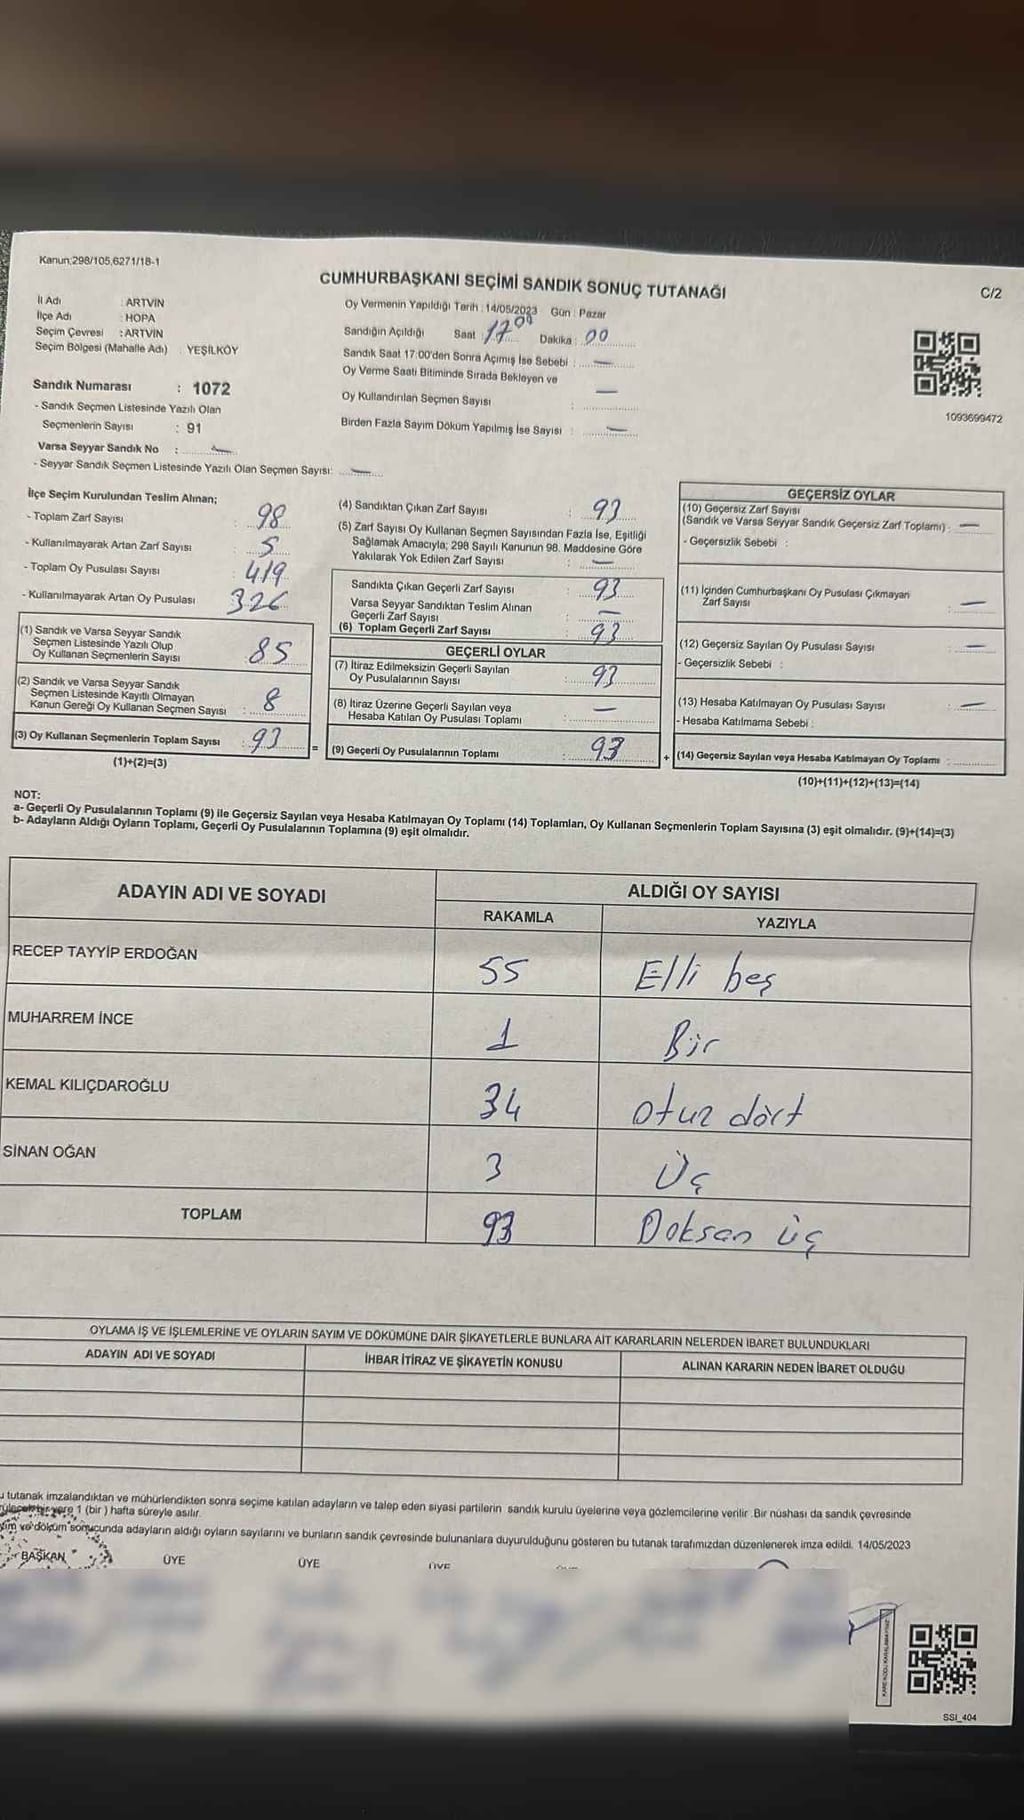 Kanun;298/105,6271/18-1
CUMHURBAŞKANI SEÇİMİ SANDIK SONUÇ TUTANAĞI
C/2
İl Adı : ARTVİN
İlçe Adı : HOPA
Seçim Çevresi : ARTVİN
Seçim Bölgesi (Mahalle Adı) : YEŞİLKÖY
Sandık Numarası : 1072
- Sandık Seçmen Listesinde Yazılı Olan
Seçmenlerin Sayısı : 91
Varsa Seyyar Sandık No : —
- Seyyar Sandık Seçmen Listesinde Yazılı Olan Seçmen Sayısı: —
Oy Vermenin Yapıldığı Tarih : 14/05/2023 Gün : Pazar
Sandığın Açıldığı Saat 17 00 Dakika : 00
Sandık Saat 17:00'den Sonra Açımış İse Sebebi : —
Oy Verme Saati Bitiminde Sırada Bekleyen ve
Oy Kullandırılan Seçmen Sayısı : —
Birden Fazla Sayım Döküm Yapılmış İse Sayısı : —
1093699472
İlçe Seçim Kurulundan Teslim Alınan;
- Toplam Zarf Sayısı : 98
- Kullanılmayarak Artan Zarf Sayısı : 5
- Toplam Oy Pusulası Sayısı : 419
- Kullanılmayarak Artan Oy Pusulası : 326
(1) Sandık ve Varsa Seyyar Sandık
Seçmen Listesinde Yazılı Olup
Oy Kullanan Seçmenlerin Sayısı : 85
(2) Sandık ve Varsa Seyyar Sandık
Seçmen Listesinde Kayıtlı Olmayan
Kanun Gereği Oy Kullanan Seçmen Sayısı : 8
(3) Oy Kullanan Seçmenlerin Toplam Sayısı : 93
(1)+(2)=(3)
=
(4) Sandıktan Çıkan Zarf Sayısı : 93
(5) Zarf Sayısı Oy Kullanan Seçmen Sayısından Fazla İse, Eşitliği
Sağlamak Amacıyla; 298 Sayılı Kanunun 98. Maddesine Göre
Yakılarak Yok Edilen Zarf Sayısı : —
Sandıkta Çıkan Geçerli Zarf Sayısı : 93
Varsa Seyyar Sandıktan Teslim Alınan
Geçerli Zarf Sayısı : —
(6) Toplam Geçerli Zarf Sayısı : 93
GEÇERLİ OYLAR
(7) İtiraz Edilmeksizin Geçerli Sayılan
Oy Pusulalarının Sayısı : 93
(8) İtiraz Üzerine Geçerli Sayılan veya
Hesaba Katılan Oy Pusulası Toplamı : —
(9) Geçerli Oy Pusulalarının Toplamı : 93
+
GEÇERSİZ OYLAR
(10) Geçersiz Zarf Sayısı
(Sandık ve Varsa Seyyar Sandık Geçersiz Zarf Toplamı) : —
- Geçersizlik Sebebi :
(11) İçinden Cumhurbaşkanı Oy Pusulası Çıkmayan
Zarf Sayısı : —
(12) Geçersiz Sayılan Oy Pusulası Sayısı : —
- Geçersizlik Sebebi :
(13) Hesaba Katılmayan Oy Pusulası Sayısı : —
- Hesaba Katılmama Sebebi :
(14) Geçersiz Sayılan veya Hesaba Katılmayan Oy Toplamı :
(10)+(11)+(12)+(13)=(14)
NOT:
a- Geçerli Oy Pusulalarının Toplamı (9) ile Geçersiz Sayılan veya Hesaba Katılmayan Oy Toplamı (14) Toplamları, Oy Kullanan Seçmenlerin Toplam Sayısına (3) eşit olmalıdır. (9)+(14)=(3)
b- Adayların Aldığı Oyların Toplamı, Geçerli Oy Pusulalarının Toplamına (9) eşit olmalıdır.
ADAYIN ADI VE SOYADI
ALDIĞI OY SAYISI
RAKAMLA YAZIYLA
RECEP TAYYİP ERDOĞAN 55 Elli beş
MUHARREM İNCE 1 Bir
KEMAL KILIÇDAROĞLU 34 otuz dört
SİNAN OĞAN 3 Üç
TOPLAM 93 Doksan üç
OYLAMA İŞ VE İŞLEMLERİNE VE OYLARIN SAYIM VE DÖKÜMÜNE DAİR ŞİKAYETLERLE BUNLARA AİT KARARLARIN NELERDEN İBARET BULUNDUKLARI
ADAYIN ADI VE SOYADI İHBAR İTİRAZ VE ŞİKAYETİN KONUSU ALINAN KARARIN NEDEN İBARET OLDUĞU
u tutanak imzalandıktan ve mühürlendikten sonra seçime katılan adayların ve talep eden siyasi partilerin sandık kurulu üyelerine veya gözlemcilerine verilir. Bir nüshası da sandık çevresinde
bir yere 1 (bir) hafta süreyle asılır.
ve döküm sonucunda adayların aldığı oyların sayılarını ve bunların sandık çevresinde bulunanlara duyurulduğunu gösteren bu tutanak tarafımızdan düzenlenerek imza edildi. 14/05/2023
BAŞKAN ÜYE ÜYE ÜYE
SSI_404